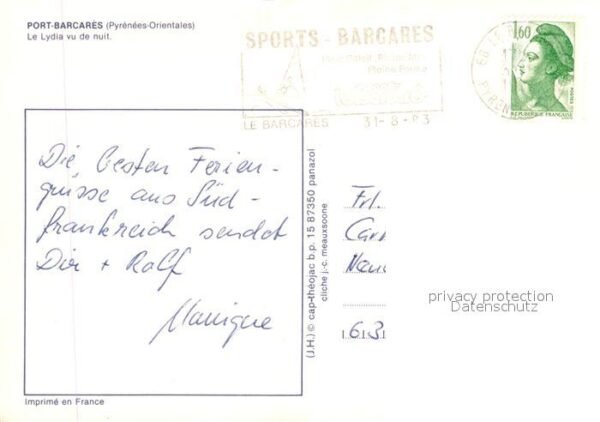 PORT-BARCARÈS (Pyrénées-Orientales)
Le Lydia vu de nuit.
SPORTS - BARCARES
Pleine Forme
LE BARCARES 31-8-83
1,60
REPUBLIQUE FRANÇAISE
Die besten Ferien-
grüsse aus Süd-
frankreich sendet
Dir + Ralf
Monique
(J.H.) © cap-théojac b.p. 15 87350 panazol
cliché j.-c. meauxsoone
Frl.
631
privacy protection
Datenschutz
Imprimé en France